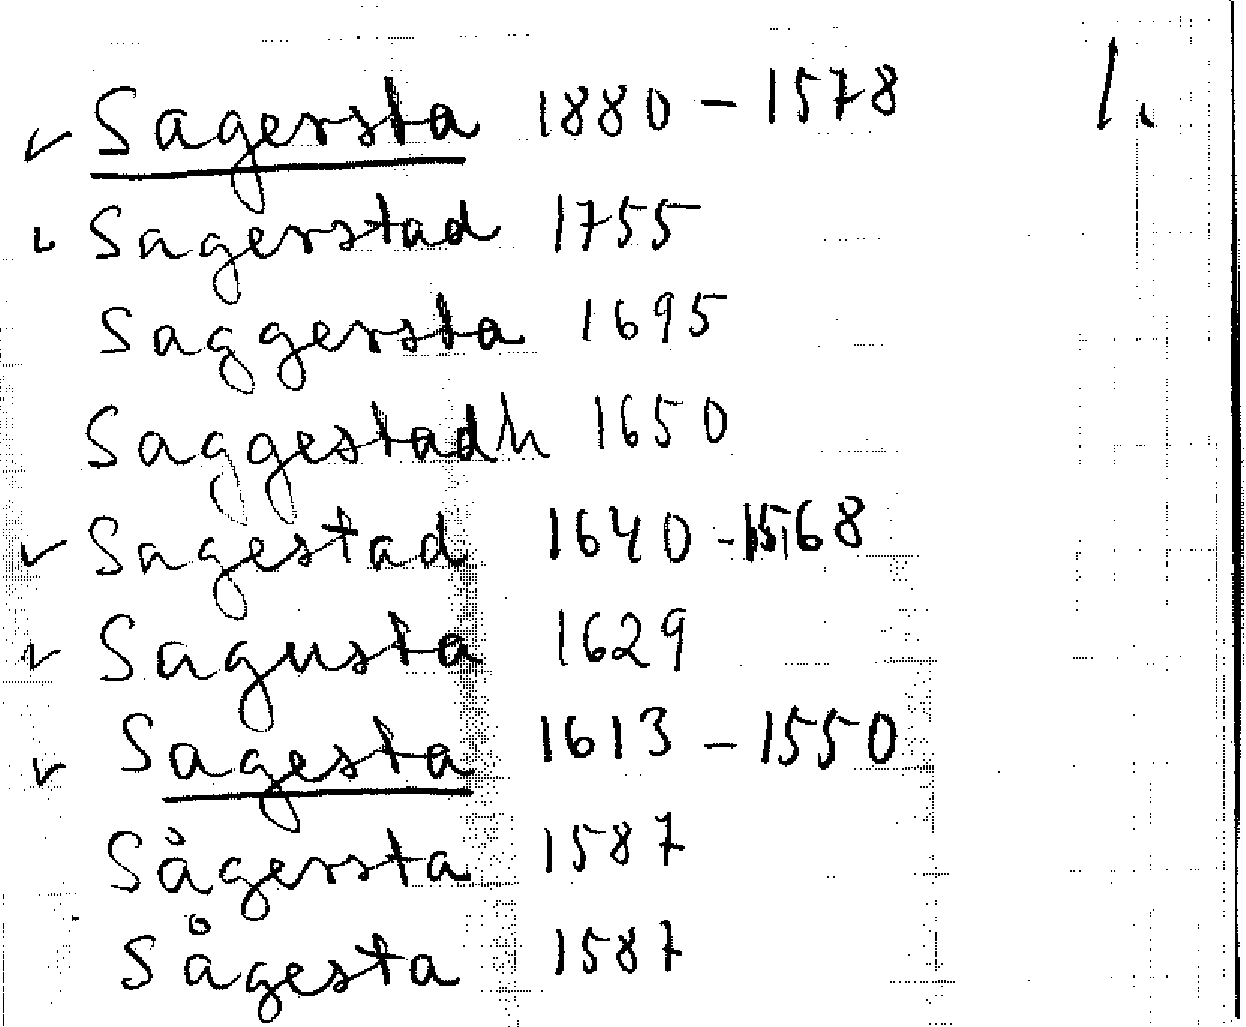 ✓ Sagersta 1880 – 1578 1.
✓ Sagerstad 1755
Saggersta 1695
Saggestadh 1650
✓ Sagestad 1640 - 1568
✓ Sagusta 1629
✓ Sagesta 1613 – 1550
Sågersta 1587
Sågesta 1587